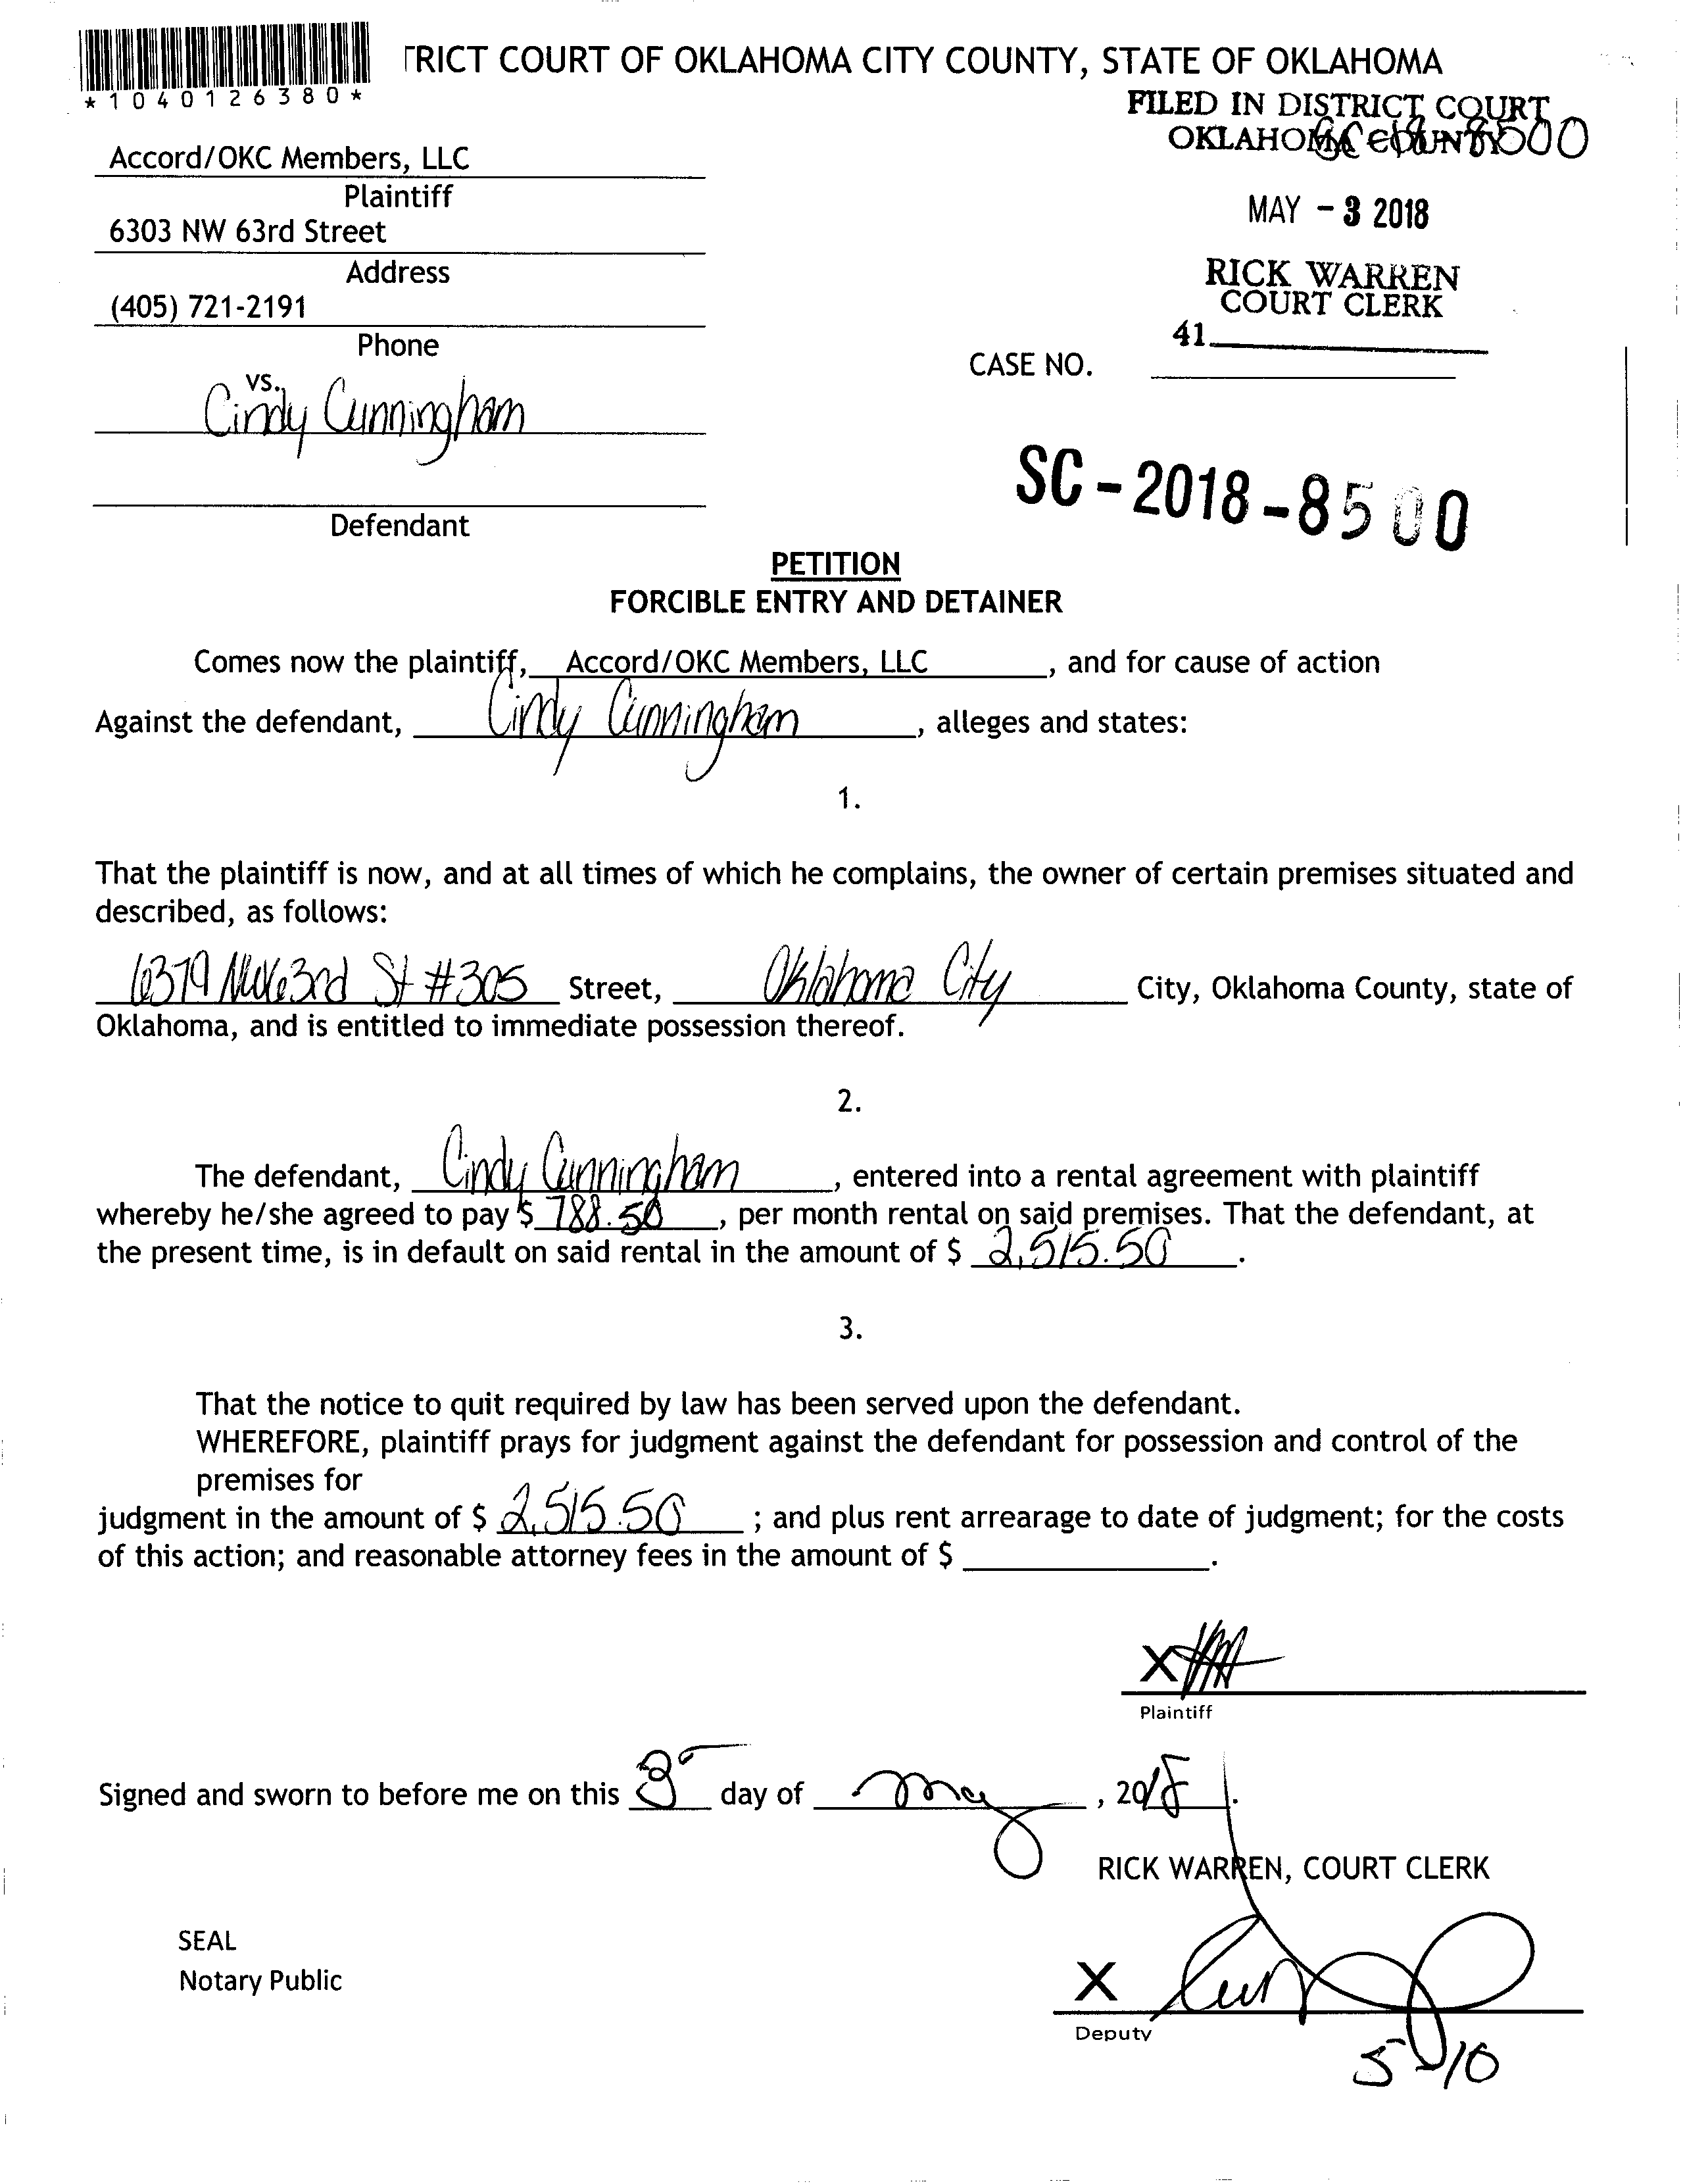 TRICT COURT OF OKLAHOMA CITY COUNTY, STATE OF OKLAHOMA
*1040126380*
FILED IN DISTRICT COURT
OKLAHOMA COUNTY
Accord/OKC Members, LLC
Plaintiff
MAY - 3 2018
6303 NW 63rd Street
Address
RICK WARREN
COURT CLERK
(405) 721-2191
41
Phone
CASE NO.
vs.
Cindy Cunningham
SC-2018-8500
Defendant
PETITION
FORCIBLE ENTRY AND DETAINER
Comes now the plaintiff, Accord/OKC Members, LLC, and for cause of action
Against the defendant, Cindy Cunningham, alleges and states:
1.
That the plaintiff is now, and at all times of which he complains, the owner of certain premises situated and
described, as follows:
6379 NW 63rd St #305 Street, Oklahoma City City, Oklahoma County, state of
Oklahoma, and is entitled to immediate possession thereof.
2.
The defendant, Cindy Cunningham, entered into a rental agreement with plaintiff
whereby he/she agreed to pay $ 788.50, per month rental on said premises. That the defendant, at
the present time, is in default on said rental in the amount of $ 2,515.50.
3.
That the notice to quit required by law has been served upon the defendant.
WHEREFORE, plaintiff prays for judgment against the defendant for possession and control of the
premises for
judgment in the amount of $ 2,515.50 ; and plus rent arrearage to date of judgment; for the costs
of this action; and reasonable attorney fees in the amount of $ .
X
Plaintiff
Signed and sworn to before me on this 3 day of May, 2018.
RICK WARREN, COURT CLERK
SEAL
Notary Public
X
Deputy
5-10